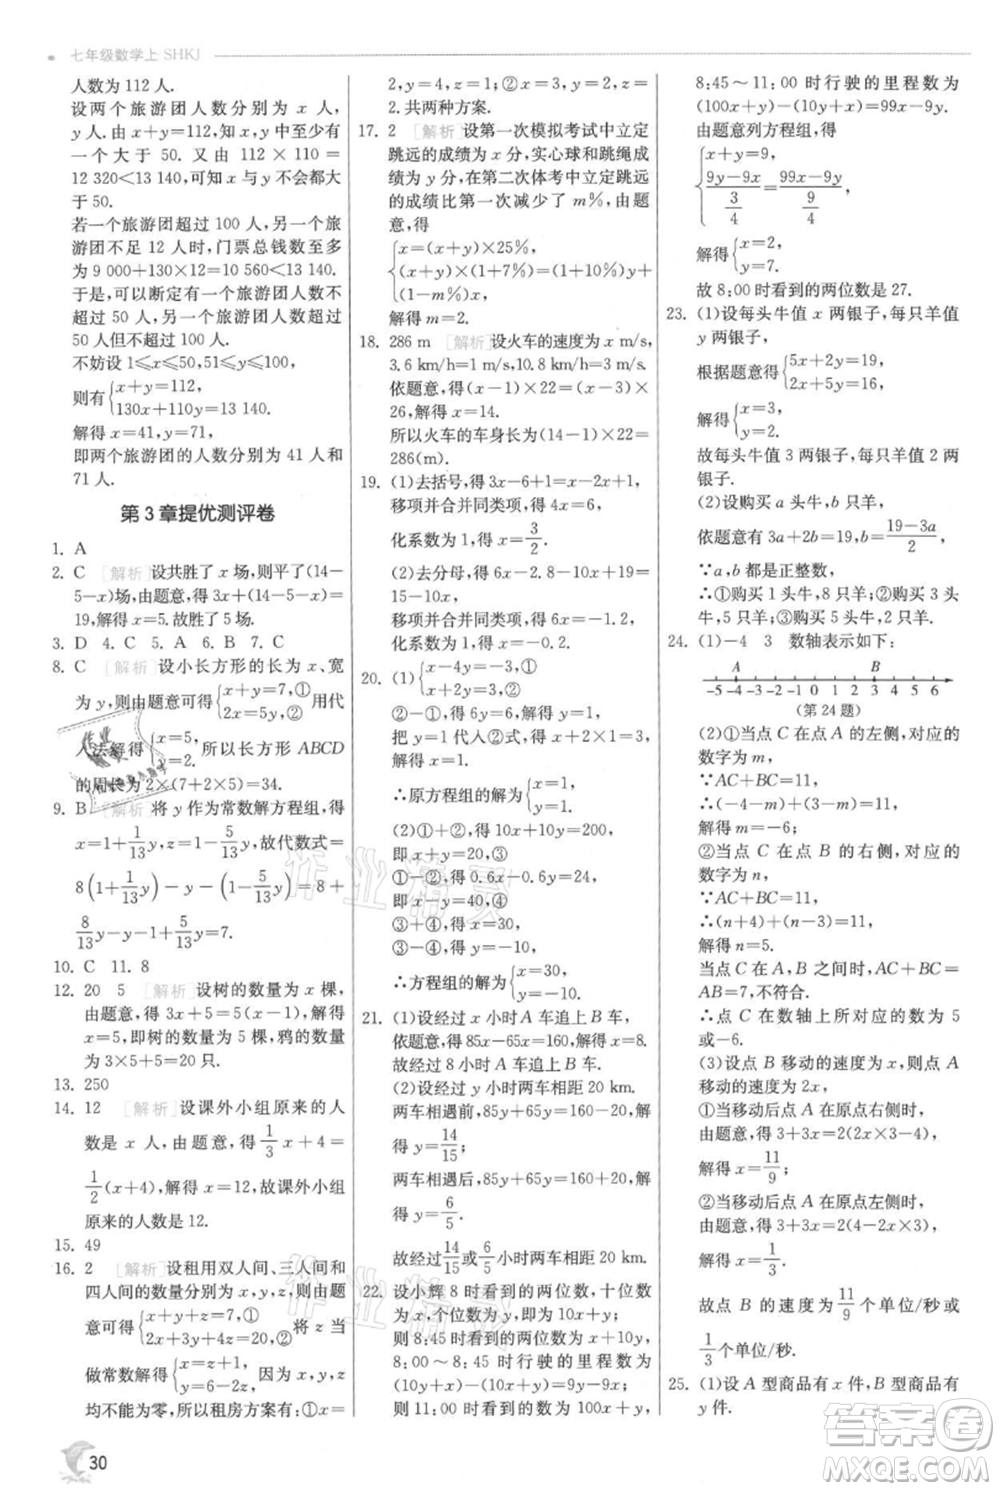 七年级数学上 SHKJ
人数为 112 人.
设两个旅游团人数分别为 x 人,
y 人. 由 x+y=112, 知 x,y 中有
一个大于 50. 又由 112×110=
12 320<13 140, 可知不会都大
于 50.
若一个旅游团超过 100 人,另一个
旅游团不足 12 人,门票总钱数小于
等于 9 000+130×12=10 560<13 140.
于是可知,一个旅游团人数不足
50 人,另一个旅游团人数超过
50 人但不超过 100 人.
不妨设 1⩽x⩽50,51⩽y⩽100,
则有{x+y=112,
130x+110y=13 140.
解得 x=41,y=71,
即两个旅游团的人数分别为 41 人和
71 人.
第 3 章提优测评卷
1. A
2. C [解析] 设共胜了 x 场,则平了(14-
5-x)场,由题意得 3x+(14-5-x)=
19,解得 x=5.故胜了 5 场.
3. D 4. C 5. A 6. B 7. C
8. C [解析] 设小长方形的长为 x、宽
为 y,由题意可得{x+y=7,①
2x=5y,② 用代
人法解得{x=5,
y=2. 所以长方形 ABCD
的周长为 2×(7+2×5)=34.
9. B [解析] 将 y 作为常数解方程组,得
x=1+1/13y,z=1-5/13y,故代数式=
8(1+1/13y)-y-(1-5/13y)=8+
8/13y-y-1+5/13y=7.
10. C 11. 8
12. 20 5 [解析] 设树的数量为 x 棵,
由题意,得 3x+5=5(x-1),解得
x=5,即树的数量为 5 棵,鸦的数量
为 3×5+5=20 只.
13. 250
14. 12 [解析] 设课外小组原来的人
数是 x 人,由题意,得 1/3x+4=
1/2(x+4),解得 x=12,故课外小组
原来的人数是 12.
15. 49
16. 2 [解析] 设租用双人间、三人间和
四人间的数量分别为 x,y,z,则由题
意可得{x+y+z=7,①
2x+3y+4z=20.② 将 z 当
做常数解得{x=z+1,
y=6-2z, 又 x,y,z
均不能为零,所以租房方案有:①x=
2,y=4,z=1;②x=3,y=2,z=
2.共两种方案.
17. 2 [解析] 设第一次模拟考试中立定
跳远的成绩为 x 分,实心球和跳绳成
绩为 y 分,第二次体考中立定跳远
的成绩比第一次减少了 m%,由题
意,得
{x=(x+y)×25%,
(x+y)×(1+7%)=(1+10%)y+
(1-m%)x.
解得 m=2.
18. 286 m [解析]设火车的速度为 x m/s,
3.6 km/h=1 m/s,10.8 km/h=3 m/s.
依题意,得(x-1)×22=(x-3)×
26,解得 x=14.
所以火车的车身长为(14-1)×22=
286(m).
19. (1)去括号,得 3x-6+1=x-2+1,
移项并合并同类项,得 2x=3,
化系数为 1,得 x=3/2.
(2)去分母,得 6x-2.8-10x+19=
17,
移项并合并同类项,得-4x=0.8,
化系数为 1,得 x=-0.2.
20. (1){x-4y=-3,①
x+2y=3,②
②-①,得 6y=6,解得 y=1.
把 y=1 代人②式,得 x+2=3,解得
x=1.
∴原方程组的解为{x=1,
y=1.
(2)①+②,得 10x+10y=200,
即 x+y=20,③
①-②,得 6x-6y=240,
即 x-y=40,④
③+④,得 x=30,
③-④,得 y=-10.
∴方程组的解为{x=30,
y=-10.
21. (1)设经过 x 小时 A 车追上 B 车,
依题意,得 85x-65x=160,解得 x=8.
故经过 8 小时 A 车追上 B 车.
(2)设经过 y 小时两车相距 20 km.
两车相遇前,85y+65y=160-20,解
得 y=14/15;
两车相遇后,85y+65y=160+20,解
得 y=6/5.
故经过14/15或6/5小时两车相距 20 km.
22. 设小辉 8:00 时看到的两位数,十位数
为 x,个位数为 y,
则 8:45 时看到的两位数为 10y+x,
8:00~8:45 时行驶的里程数为
(10y+x)-(10x+y)=9y-9x;
则 11:00 时看到的数为 100x+y,
8:45~11:00 时行驶的里程数为
(100x+y)-(10y+x)=99x-9y.
由题意列方程组,得
{x+y=9,
(9y-9x)/(3/4)=(99x-9y)/(9/4),
解得{x=2,
y=7.
故 8:00 时看到的两位数是 27.
23. (1)设每头牛值 x 两银子,每只羊值
y 两银子,
根据题意得{5x+2y=19,
2x+5y=16,
解得{x=3,
y=2.
故每头牛值 3 两银子,每只羊值 2 两
银子.
(2)设购买 a 头牛,b 只羊,
依题意有 3a+2b=19,b=(19-3a)/2,
∵a,b 都是正整数,
∴①购买 1 头牛,8 只羊;②购买 3 头
牛,5 只羊;③购买 5 头牛,2 只羊.
24. (1)-4 3 数轴表示如下:
A B
-5-4-3-2-1 0 1 2 3 4 5 6
(第 24 题)
(2)①当点 C 在点 A 的左侧,对应的
数字为 m,
∵AC+BC=11,
∴(-4-m)+(3-m)=11,
解得 m=-6;
②当点 C 在点 B 的右侧,对应的
数字为 n,
∵AC+BC=11,
∴(n+4)+(n-3)=11,
解得 n=5.
当点 C 在 A,B 之间时,AC+BC=
AB=7,不符合.
∴点 C 在数轴上所对应的数为 5
或-6.
(3)设点 B 移动的速度为 x,则点 A
移动的速度为 2x.
①当移动后点 A 在原点右侧时,
由题意,得 3+3x=2(3x-4),
解得 x=11/3;
②当移动后点 A 在原点左侧时,
由题意,得 3+3x=2(4-6x),
解得 x=1/3.
故点 B 的速度为 11/9 个单位/秒或
1/3个单位/秒.
25. (1)设 A 型商品有 x 件,B 型商品有
y 件.
30
作业精灵
作业精灵
答案圈
MXQE.COM